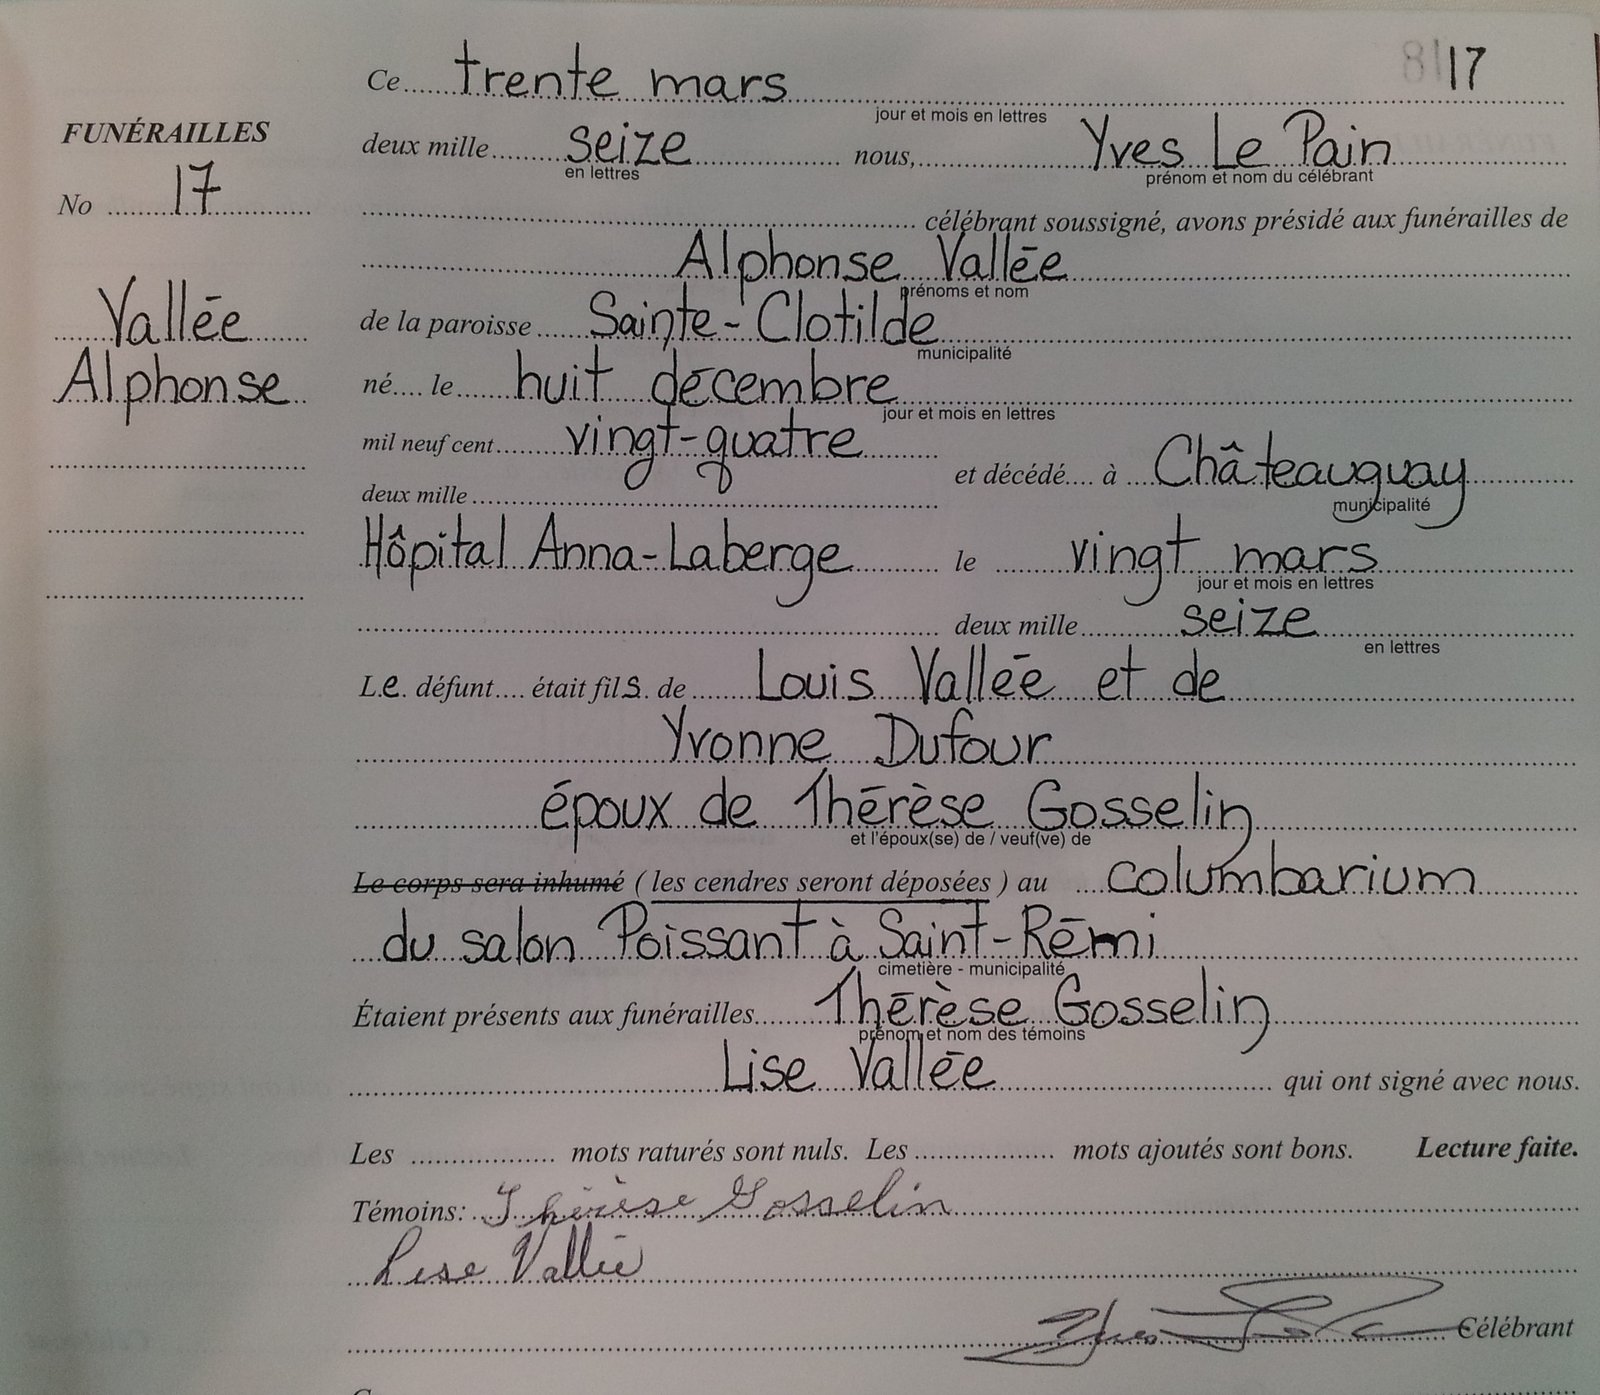 17
Ce trente mars
jour et mois en lettres
FUNÉRAILLES
deux mille seize nous, Yves Le Pain
en lettres
prénom et nom du célébrant
No 17
célébrant soussigné, avons présidé aux funérailles de
Alphonse Vallée
prénoms et nom
Vallée
de la paroisse Sainte-Clotilde
municipalité
Alphonse
né le huit décembre
jour et mois en lettres
mil neuf cent vingt-quatre
et décédé à Châteauguay
municipalité
deux mille
Hôpital Anna-Laberge le vingt mars
jour et mois en lettres
deux mille seize
en lettres
Le défunt était fils de Louis Vallée et de
Yvonne Dufour
époux de Thérèse Gosselin
et l'époux(se) de / veuf(ve) de
Le corps sera inhumé (les cendres seront déposées) au columbarium
du salon Poissant à Saint-Rémi
cimetière - municipalité
Étaient présents aux funérailles Thérèse Gosselin
prénom et nom des témoins
Lise Vallée qui ont signé avec nous.
Les mots raturés sont nuls. Les mots ajoutés sont bons. Lecture faite.
Témoins: Thérèse Gosselin
Lise Vallée
Célébrant